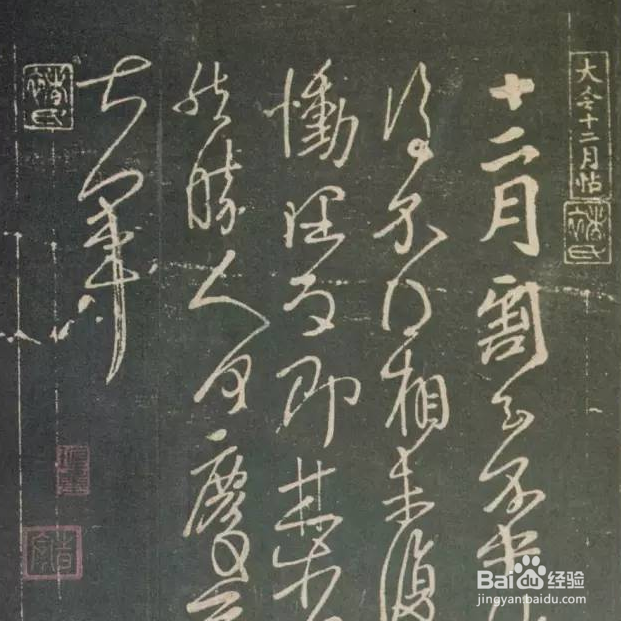 大令十二月帖
十二月割至不
得不得相未復
慟理即甚
然勝人何慶等
大軍
Baidu经验
jingyan.baidu.com